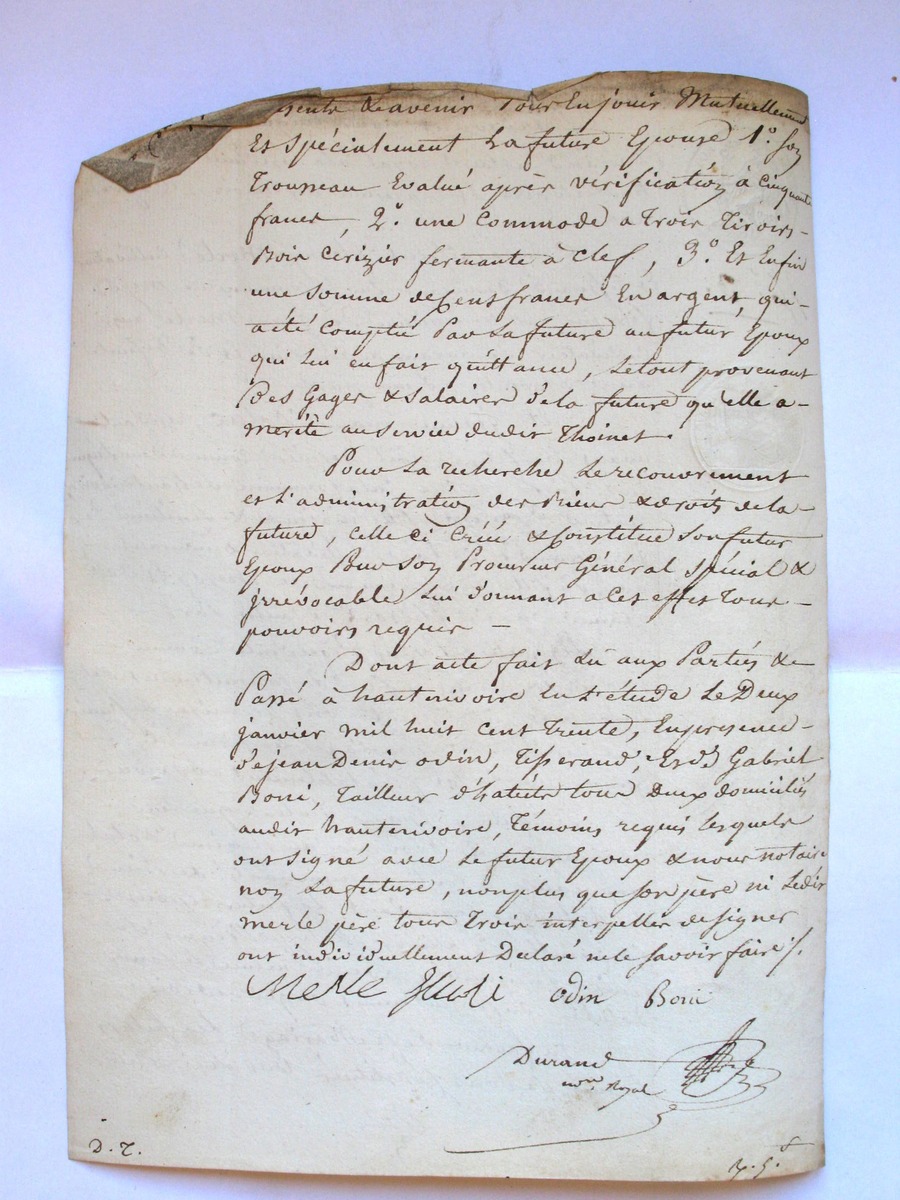 & avenir Pour En jouir Mutuellement
Et spécialement La future Epouse 1°. Son
Trousseau Evalué après vérification à Cinquante
francs, 2°. une Commode a Trois Tiroirs
Bois Cerizier fermante à Clef, 3°. Et Enfin
une Somme de Cens francs En argent, qui
a été Compté Par La future au futur Epoux
qui Lui en fait quittance, Letout provenant
Des Gages & Salaires de la future qu'elle a
mérité au Service dudit Thoinet.
Pour La recherche Le recouvrement
et L'administration des Biens & droits de la
future, Celle Ci Créé & Constitue Son futur
Epoux Pour Son Procureur Général Spécial &
jrrévocable Lui donnant a Cet effet Tous
pouvoirs requis —
Dont acte fait Lu aux Parties &
Passé à hauterivoire En L'étude Le Deux
janvier mil huit Cent Trente, En presence
de jean Denis odin, Tisserand, & Gabriel
Boni, Tailleur d'habits tous Deux domiciliés
audit hauterivoire, Témoins requis Lesquels
ont Signé avec Le futur Epoux & nous notaire
non La future, non plus que Son père ni Ledit
merle père tous Trois interpellés de Signer
ont individuellement Déclaré ne le Savoir faire ./.
Merle odin Boni
Durand
Royal
D. T.